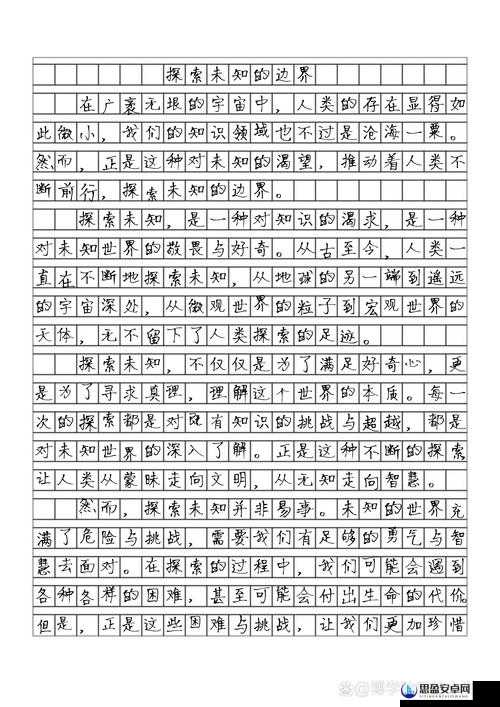 探索未知的边界
在广袤无垠的宇宙中，人类的存在显得如
此微小，我们的知识领域也不过是沧海一粟。
然而，正是这种对未知的渴望，推动着人类不
断前行，探索未知的边界。
探索未知，是一种对知识的渴求，是一种
对未知世界的敬畏与好奇。从古至今，人类一
直在不断地探索未知，从地球的另一端到遥远
的宇宙深处，从微观世界的粒子到宏观世界的
天体，无不留下了人类探索的足迹。
探索未知，不仅仅是为了满足好奇心，更
是为了寻求真理，理解这个世界的本质。每一
次的探索都是对既有知识的挑战与超越，都是
对未知世界的深入了解。正是这种不断的探索，
让人类从蒙昧走向文明，从无知走向智慧。
然而，探索未知并非易事。未知的世界充
满了危险与挑战，需要我们有足够的勇气与智
慧去面对。在探索的过程中，我们可能会遇到
各种各样的困难，甚至可能会付出生命的代价。
但是，正是这些困难与挑战，让我们更加珍惜
思盈安卓网